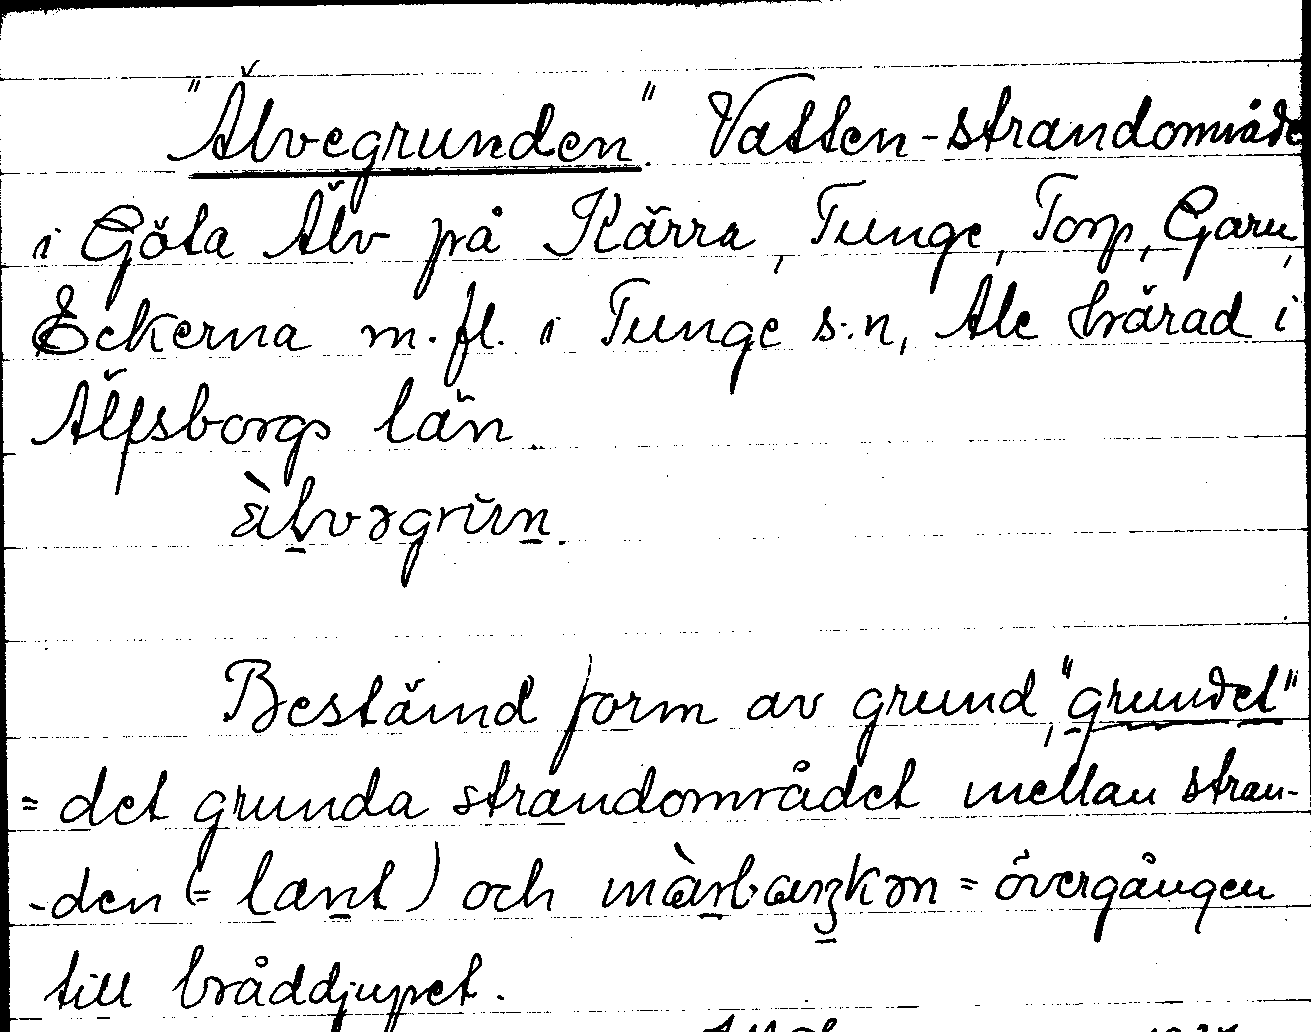 "Älvegrunden". Vatten-strandområde
i Göta Älv på Kärra, Tunge, Torp, Garn,
Eckerna m.fl. i Tunge s:n, Ale härad i
Älfsborgs län.
ä̀lvəgrŭn.
Bestämd form av grund, "grundet"
= det grunda strandområdet mellan stran-
-den (= lant) och màrbaŋkən = övergången
till bråddjupet.